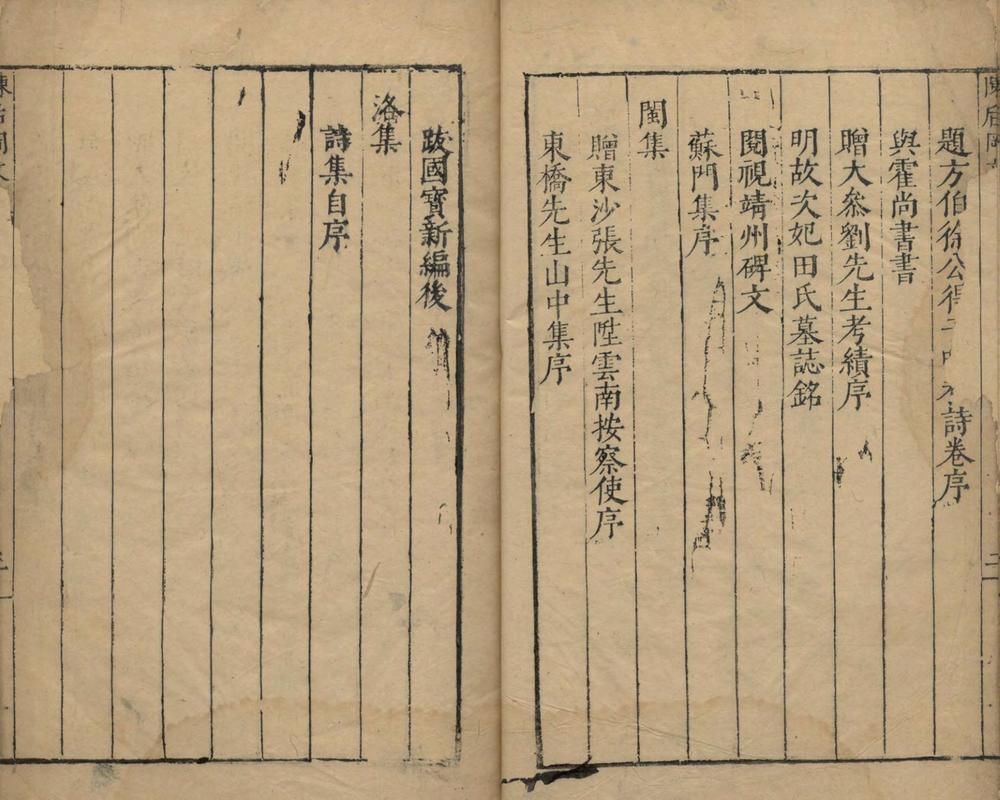 題方伯徐公得詩卷序
與霍尚書書
贈大叅劉先生考績序
明故次妃田氏墓誌銘
閱視靖州碑文
蘇門集序
閩集
贈東沙張先生陞雲南按察使序
東橋先生山中集序
跋國寶新編後
洛集
詩集自序